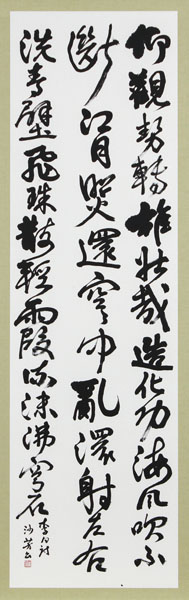 仰觀勢轉雄壯哉造化功海風吹不
斷江月照還空中亂潈射左右
洗青壁飛珠散輕霞流沫沸穹石
李白詩
沙芳书